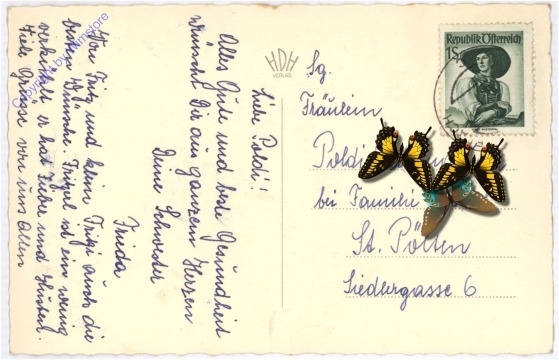 Liebe Poldi!
Alles Gute und beste Gesundheit
wünscht Dir aus ganzem Herzen
Deine Schwester
Frida
Von Fritz und klein Fritzi auch die
besten Wünsche. Fritzal ist ein wenig
verkühlt er hat Fieber und Husten.
Viele Grüsse von uns Allen
HDH
VERLAG
Republik Österreich
1S
Sg.
Fräulein
Poldi
bei Familie
St. Pölten
Siedlergasse 6